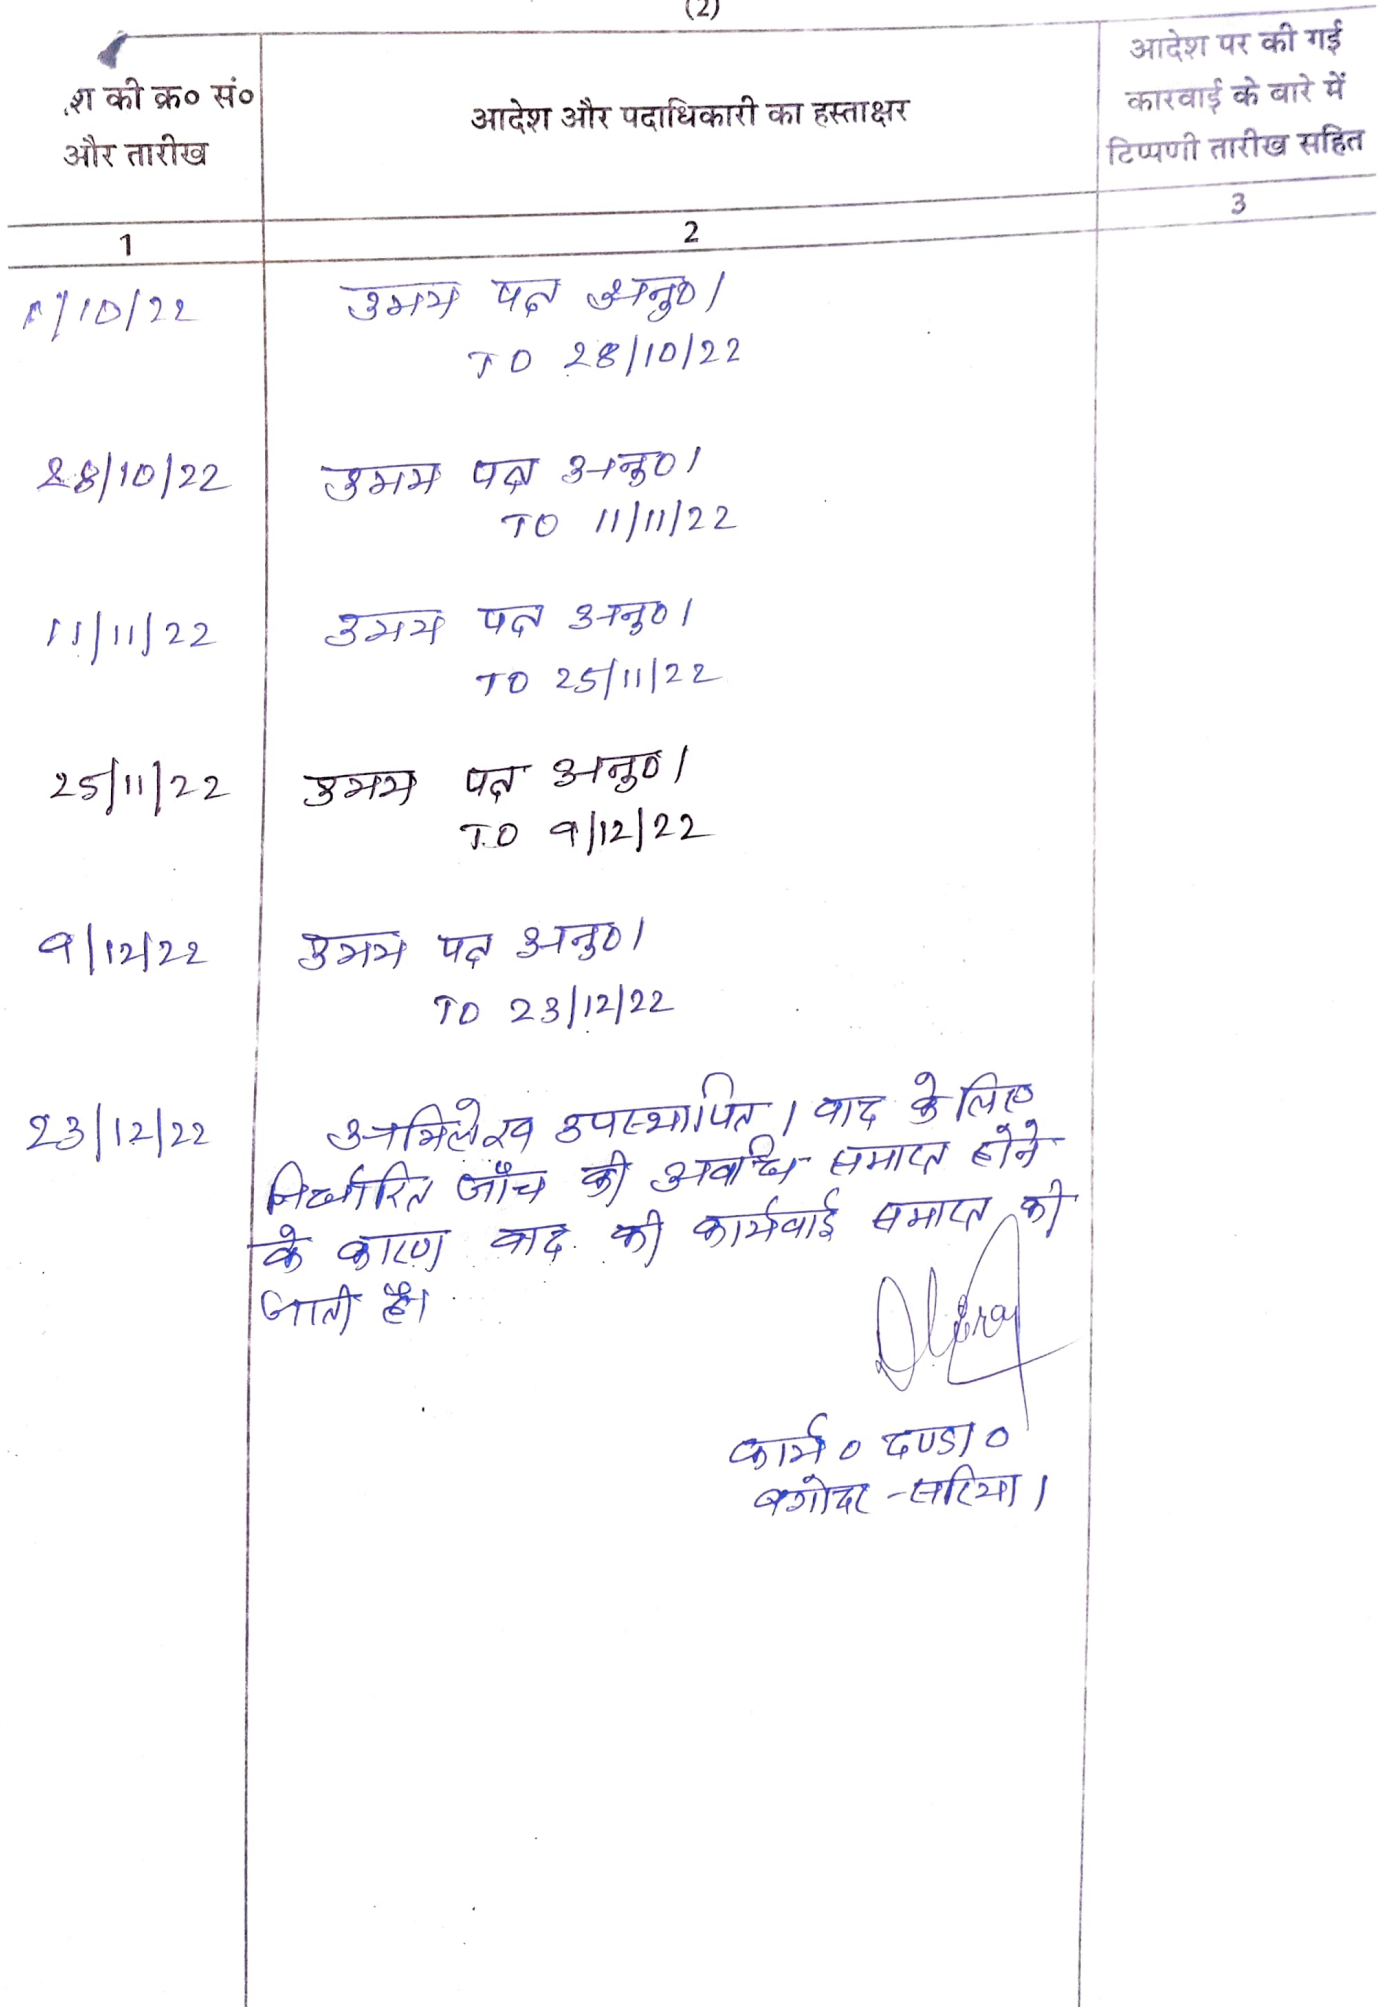 (2)
श की क्र० सं०
और तारीख
आदेश और पदाधिकारी का हस्ताक्षर
आदेश पर की गई
कारवाई के बारे में
टिप्पणी तारीख सहित
1
2
3
/10/22
उभय पक्ष अनु०।
TO 28/10/22
28/10/22
उभय पक्ष अनु०।
TO 11/11/22
11/11/22
उभय पक्ष अनु०।
TO 25/11/22
25/11/22
उभय पक्ष अनु०।
TO 9/12/22
9/12/22
उभय पक्ष अनु०।
TO 23/12/22
23/12/22
अभिलेख उपस्थापित। वाद के लिए
निर्धारित जाँच की अवधि समाप्त होने
के कारण वाद की कार्यवाई समाप्त की
जाती है।
कार्य० दण्डा०
बगोदर-सरिया।